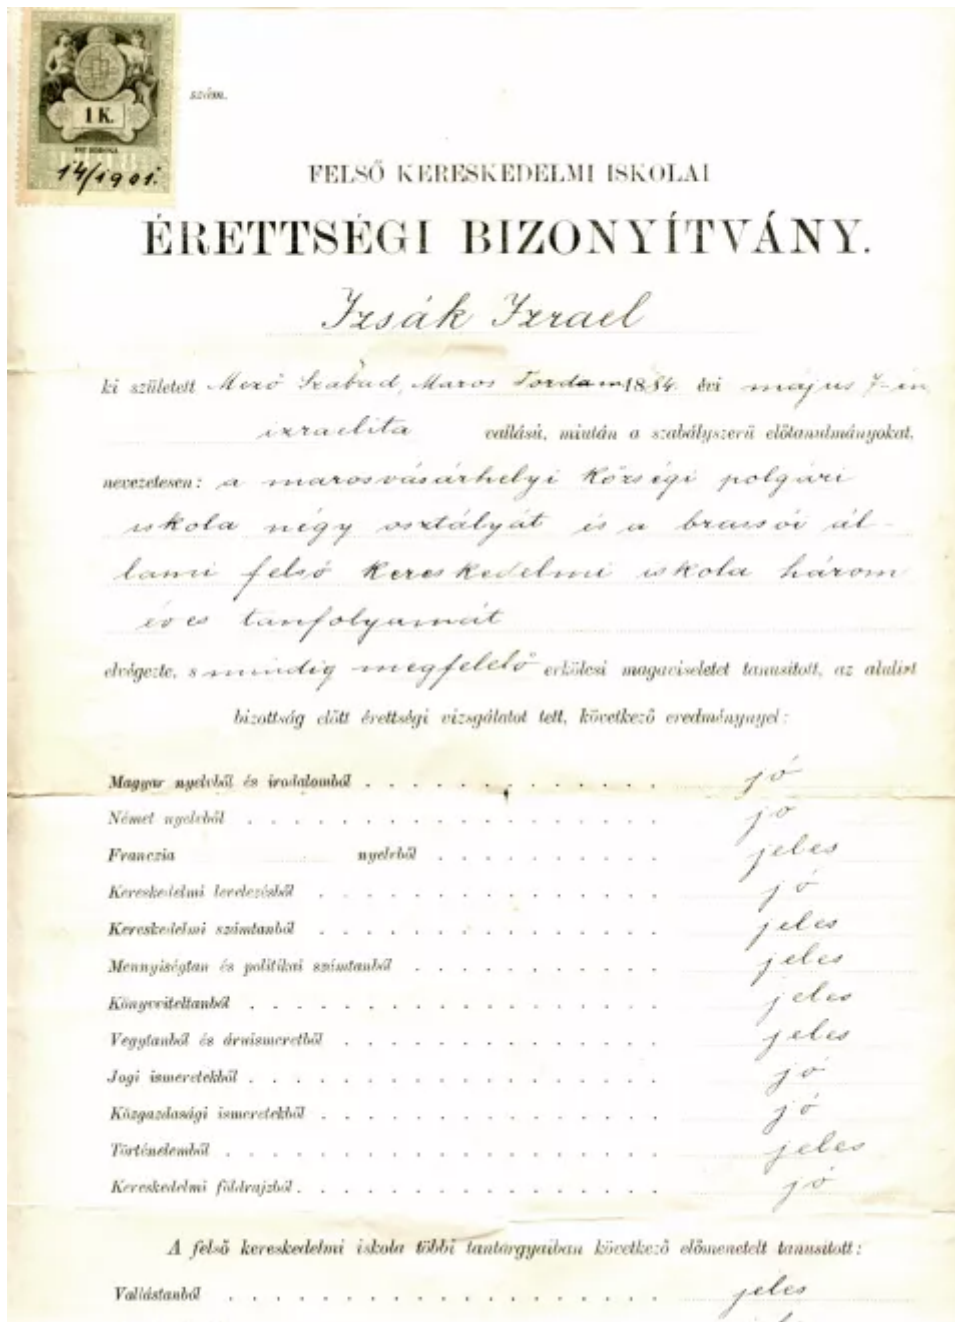 1 K.
EGY KORONA
14/1901.
szám.
FELSŐ KERESKEDELMI ISKOLAI
ÉRETTSÉGI BIZONYÍTVÁNY.
Izsák Izrael
ki született Mező Szabad, Maros Torda m 1884. évi május 7-én
izraelita vallású, miután a szabályszerű előtanulmányokat,
nevezetesen: a marosvásárhelyi községi polgári
iskola négy osztályát és a brassói ál-
lami felső kereskedelmi iskola három
éves tanfolyamát
elvégezte, s mindig megfelelő erkölcsi magaviseletet tanusított, az alulirt
bizottság előtt érettségi vizsgálatot tett, következő eredménynyel:
Magyar nyelvből és irodalomból . . . . . . . . . . . . . jó
Német nyelvből . . . . . . . . . . . . . . . . . . jó
Franczia nyelvből . . . . . . . . . . jeles
Kereskedelmi levelezésből . . . . . . . . . . . . . . jó
Kereskedelmi számtanból . . . . . . . . . . . . . . jeles
Mennyiségtan és politikai számtanból . . . . . . . . . . . jeles
Könyviteltanból . . . . . . . . . . . . . . . . . . jeles
Vegytanból és áruismeretből . . . . . . . . . . . . . . jeles
Jogi ismeretekből . . . . . . . . . . . . . . . . . . jó
Közgazdasági ismeretekből . . . . . . . . . . . . . . . jó
Történelemből . . . . . . . . . . . . . . . . . . . jeles
Kereskedelmi földrajzból . . . . . . . . . . . . . . . . jó
A felső kereskedelmi iskola többi tantárgyaiban következő előmenetelt tanusított:
Vallástanból . . . . . . . . . . . . . . . . . . . jeles